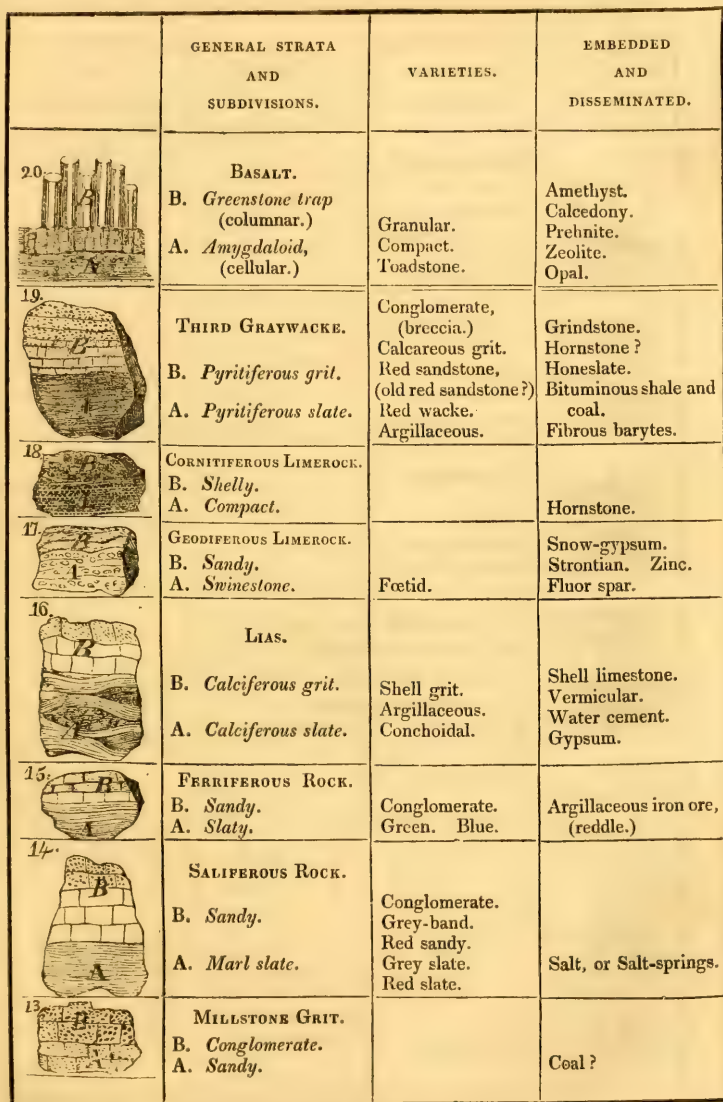 GENERAL STRATA
AND
SUBDIVISIONS.
VARIETIES.
EMBEDDED
AND
DISSEMINATED.
20
B
A
BASALT.
B. Greenstone trap
(columnar.)
A. Amygdaloid,
(cellular.)
Granular.
Compact.
Toadstone.
Amethyst.
Calcedony.
Prehnite.
Zeolite.
Opal.
19.
B
A
THIRD GRAYWACKE.
B. Pyritiferous grit.
A. Pyritiferous slate.
Conglomerate,
(breccia.)
Calcareous grit.
Red sandstone,
(old red sandstone?)
Red wacke.
Argillaceous.
Grindstone.
Hornstone?
Honeslate.
Bituminous shale and
coal.
Fibrous barytes.
18.
B
A
CORNITIFEROUS LIMEROCK.
B. Shelly.
A. Compact.
Hornstone.
17.
B
A
GEODIFEROUS LIMEROCK.
B. Sandy.
A. Swinestone.
Fœtid.
Snow-gypsum.
Strontian. Zinc.
Fluor spar.
16.
B
A
LIAS.
B. Calciferous grit.
A. Calciferous slate.
Shell grit.
Argillaceous.
Conchoidal.
Shell limestone.
Vermicular.
Water cement.
Gypsum.
15.
B
A
FERRIFEROUS ROCK.
B. Sandy.
A. Slaty.
Conglomerate.
Green. Blue.
Argillaceous iron ore,
(reddle.)
14.
B
A
SALIFEROUS ROCK.
B. Sandy.
A. Marl slate.
Conglomerate.
Grey-band.
Red sandy.
Grey slate.
Red slate.
Salt, or Salt-springs.
13.
B
A
MILLSTONE GRIT.
B. Conglomerate.
A. Sandy.
Coal?